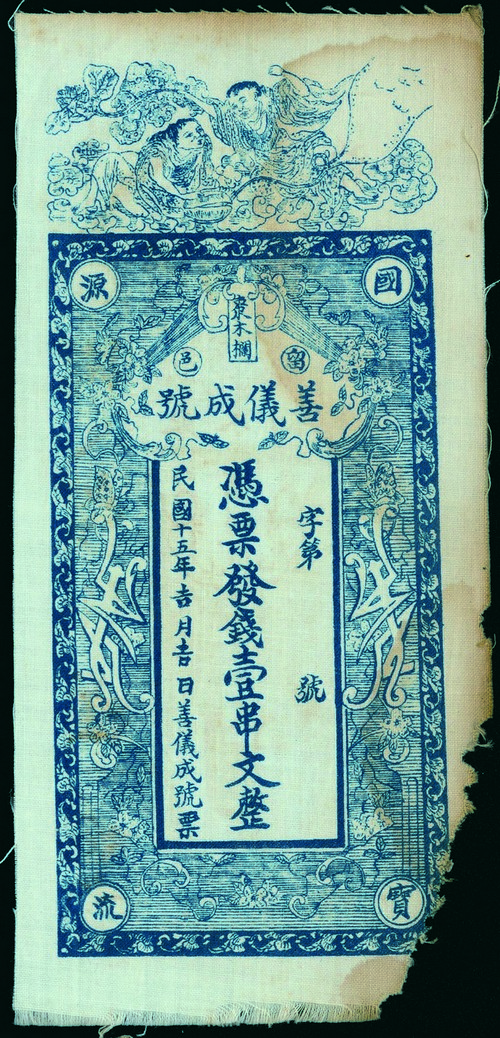 國寶源流
留邑
善儀成號
字第 號
憑票發錢壹串文整
民國十五年吉月吉日善儀成號票